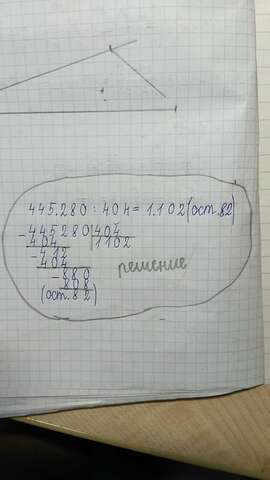 445.280 : 404 = 1.102 (ост. 82)
- 445280 404
404 1102
- 412
404
- 880
808
(ост. 82)
решение